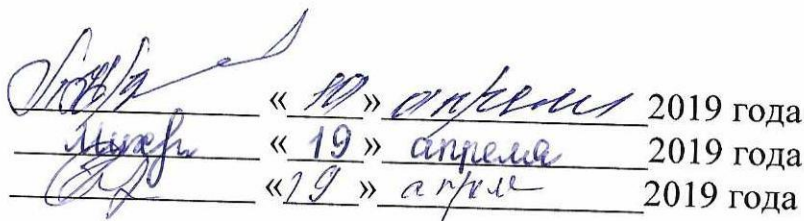 « 19 » апреля 2019 года
« 19 » апреля 2019 года
« 19 » апреля 2019 года